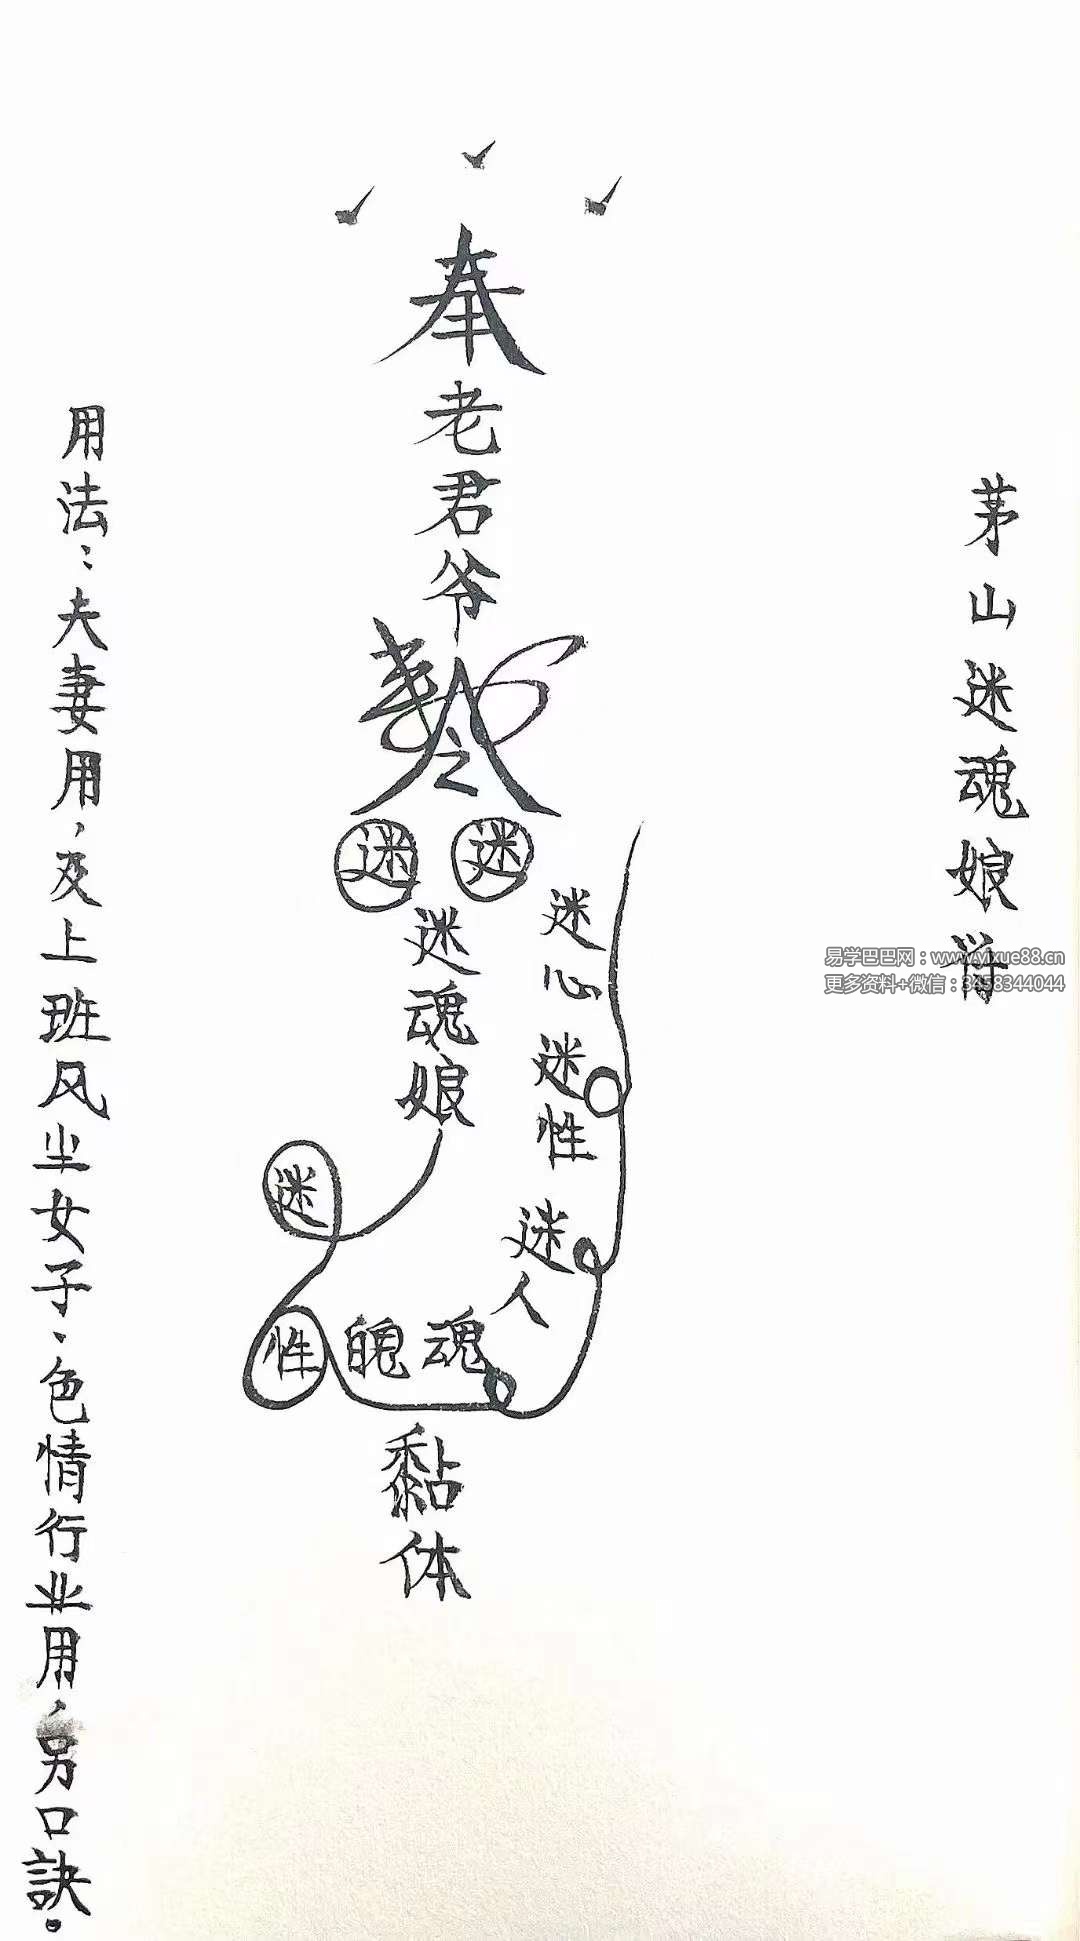 茅山迷魂娘符
奉
老君爷
令
迷 迷
迷魂娘
迷心 迷性 迷人
迷
性 魄 魂
黏体
用法：夫妻用，及上班风尘女子、色情行业用，另口訣。
易学巴巴网：www.yixue88.cn
更多资料+微信：3458344044